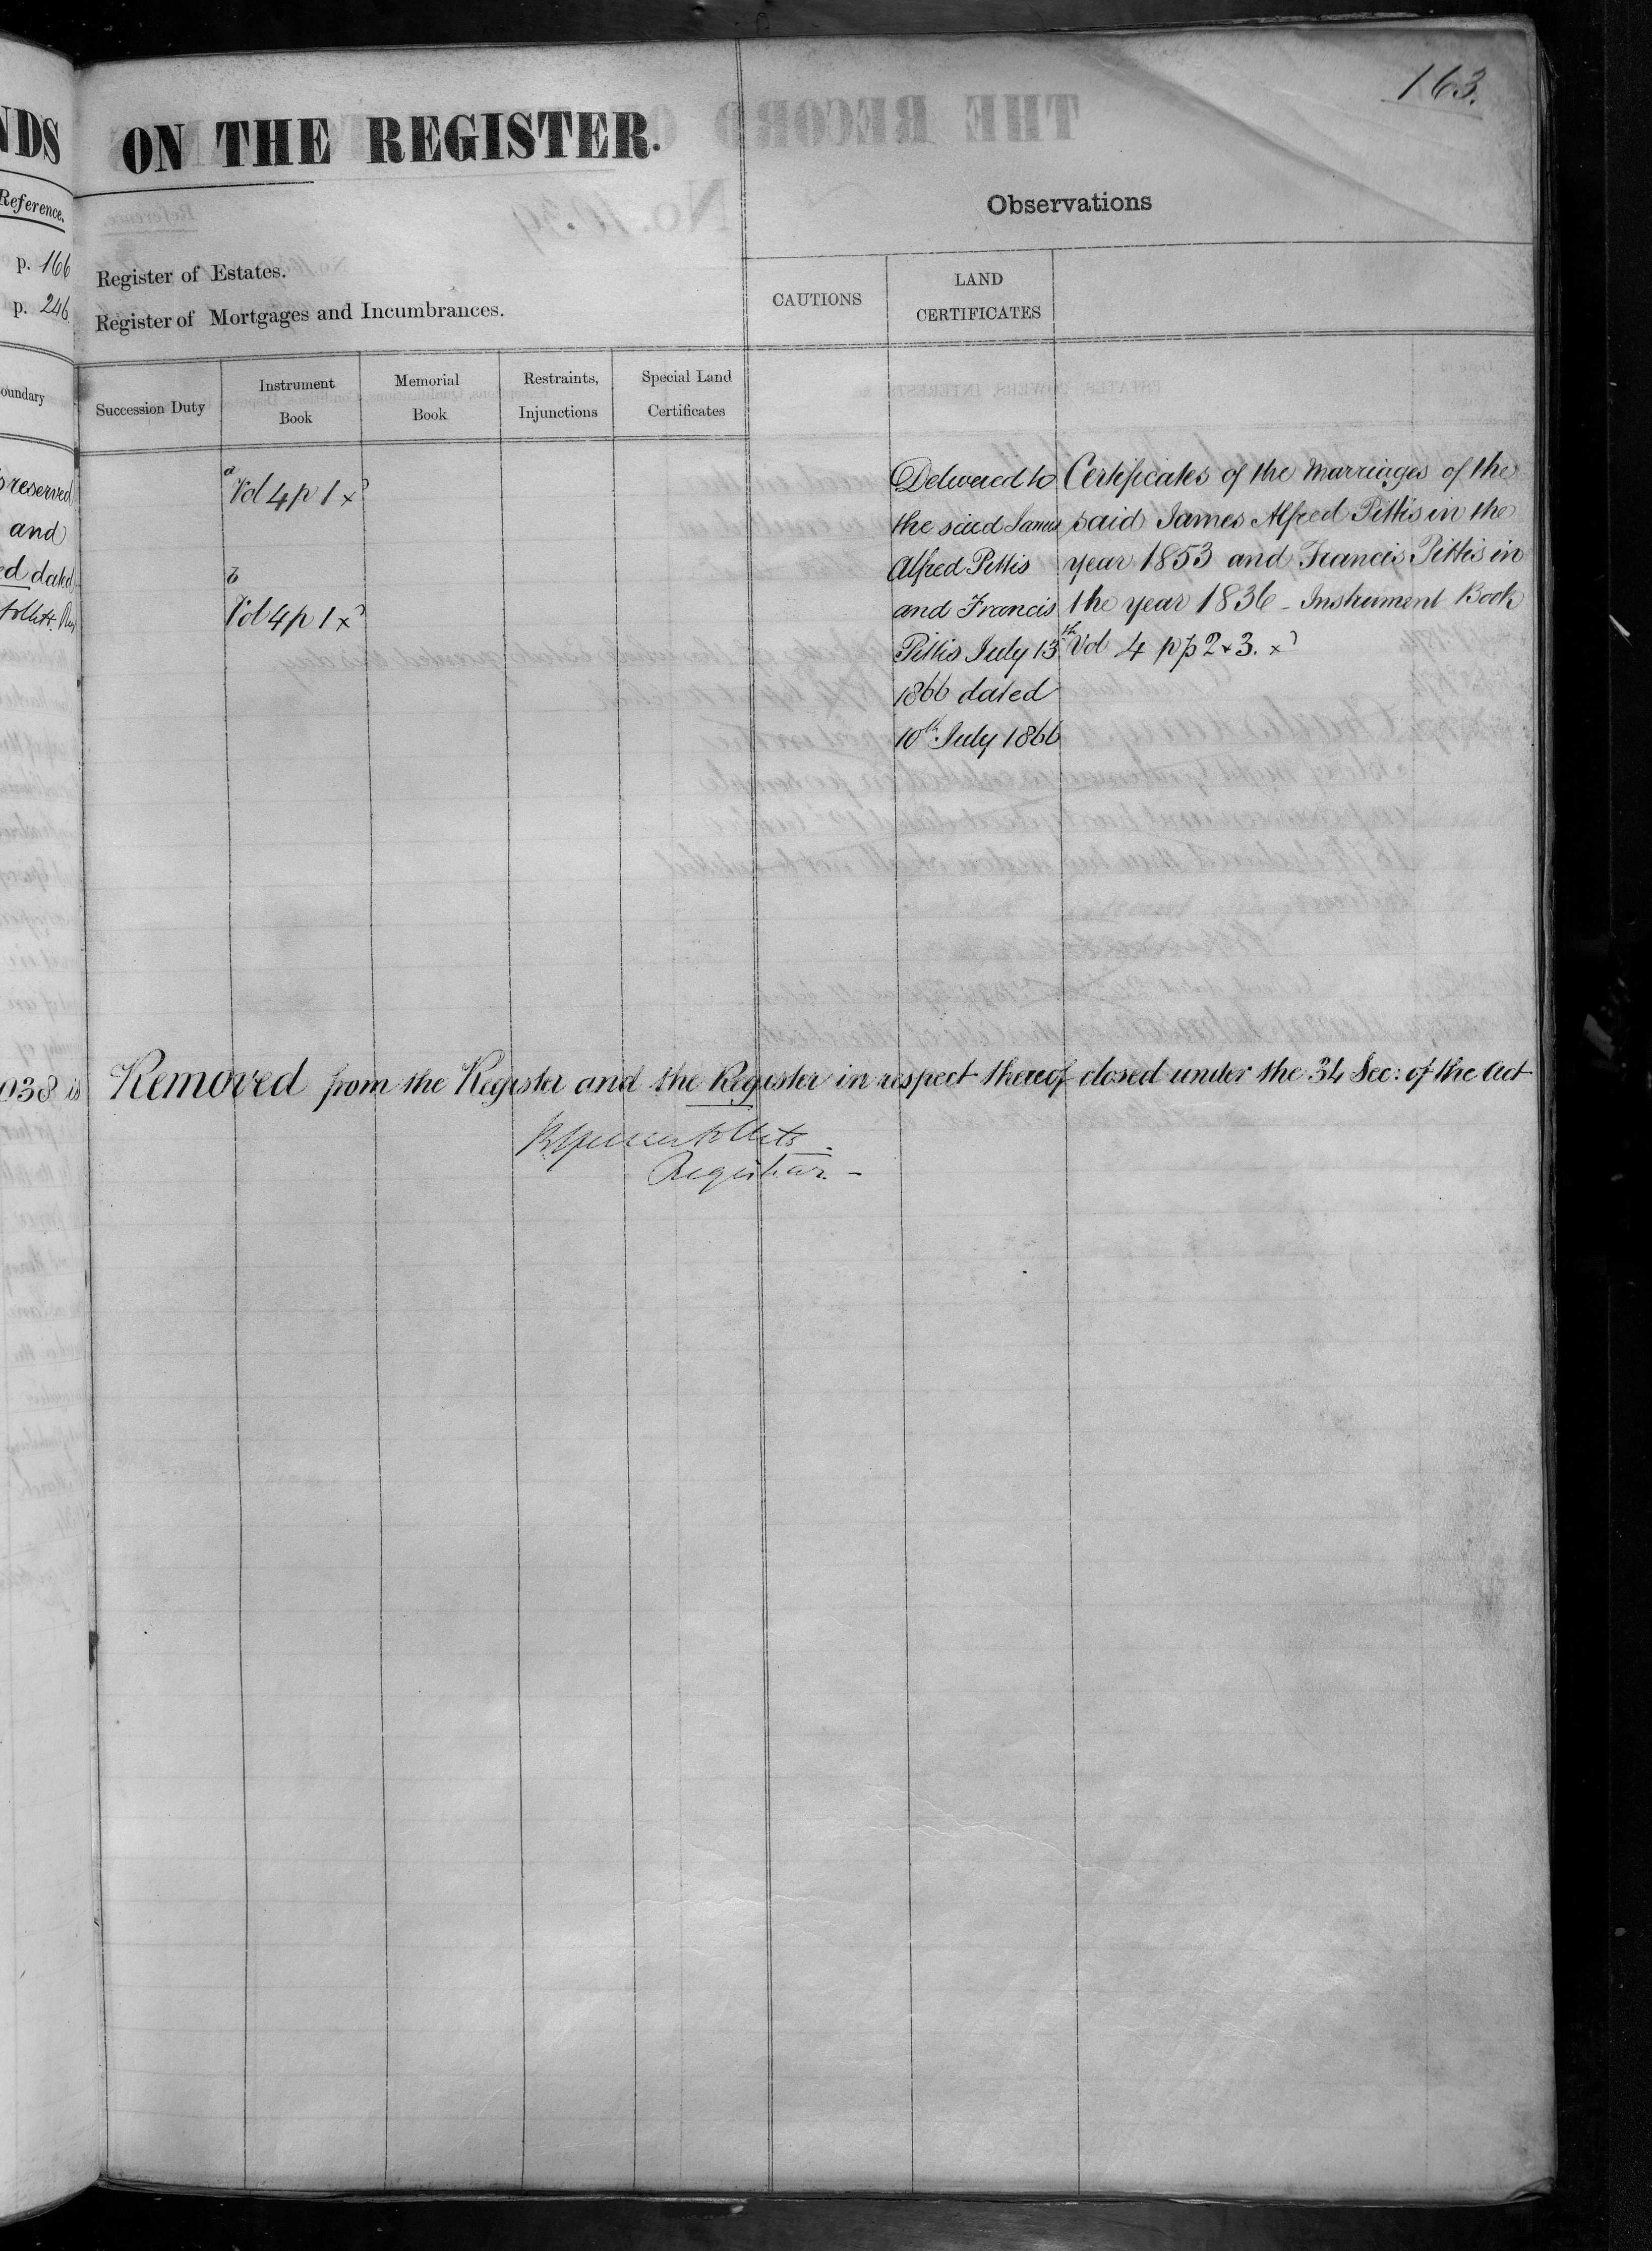 163.
NDS
ON THE REGISTER.
Reference.
Observations
p. 166
Register of Estates.
p. 246
Register of Mortgages and Incumbrances.
CAUTIONS
LAND
CERTIFICATES
oundary
Succession Duty
Instrument
Book
Memorial
Book
Restraints,
Injunctions
Special Land
Certificates
reserved
and
ed dated
a
Vol 4 p 1 x
b
Vol 4 p 1 x
Delivered to
the said James
Alfred Pittis
and Francis
Pittis July 13th
1866 dated
10th July 1866
Certificates of the Marriages of the
said James Alfred Pittis in the
year 1853 and Francis Pittis in
the year 1836 - Instrument Book
Vol 4 pp 2 & 3. x
038 is
Removed from the Register and the Register in respect thereof closed under the 34 Sec: of the Act
Registrar. -